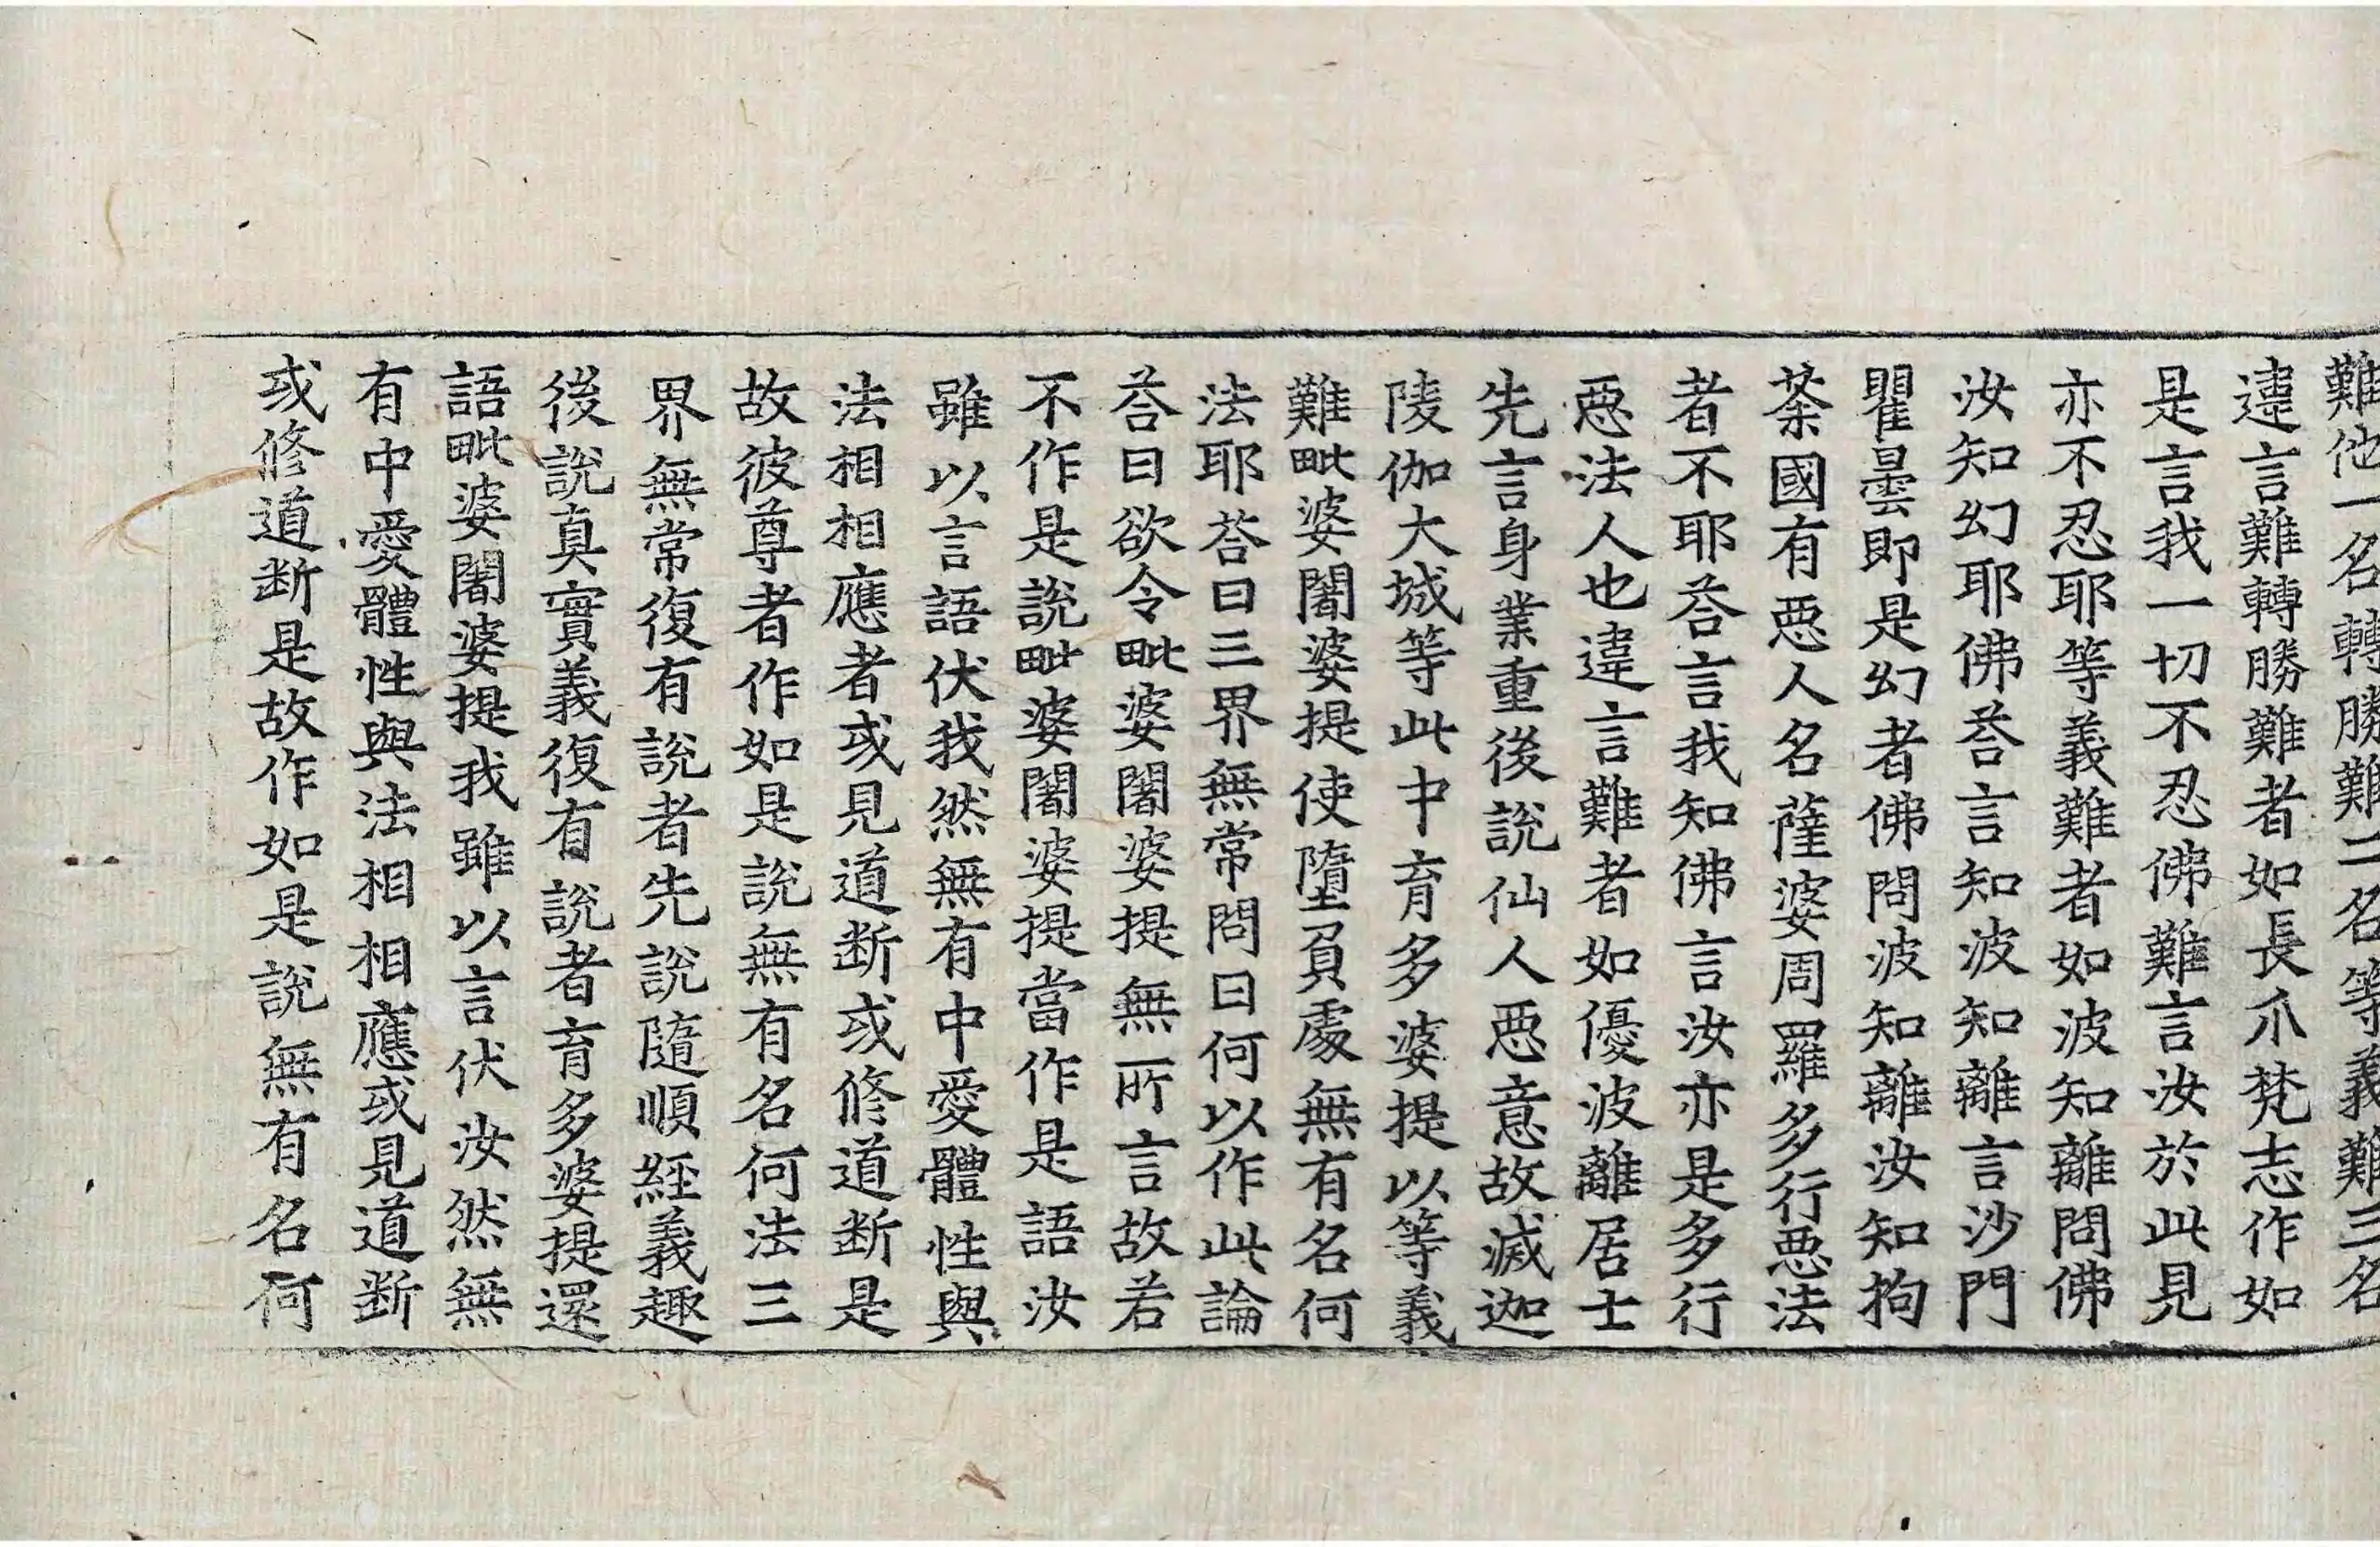 難他一名轉勝難二名等義難三名
違言難轉勝難者如長爪梵志作如
是言我一切不忍佛難言汝於此見
亦不忍耶等義難者如波知離問佛
汝知幻耶佛荅言知波知離言沙門
瞿曇即是幻者佛問波知離汝知拘
荼國有惡人名薩婆周羅多行惡法
者不耶荅言我知佛言汝亦是多行
惡法人也違言難者如優波離居士
先言身業重後說仙人惡意故滅迦
陵伽大城等此中育多婆提以等義
難毗婆闍婆提使墮負處無有名何
法耶荅曰三界無常問曰何以作此論
荅曰欲令毗婆闍婆提無所言故若
不作是說毗婆闍婆提當作是語汝
雖以言語伏我然無有中愛體性與
法相相應者或見道断或修道断是
故彼尊者作如是說無有名何法三
界無常復有說者先說隨順經義趣
後說真實義復有說者育多婆提還
語毗婆闍婆提我雖以言伏汝然無
有中愛體性與法相相應或見道断
或修道断是故作如是說無有名何